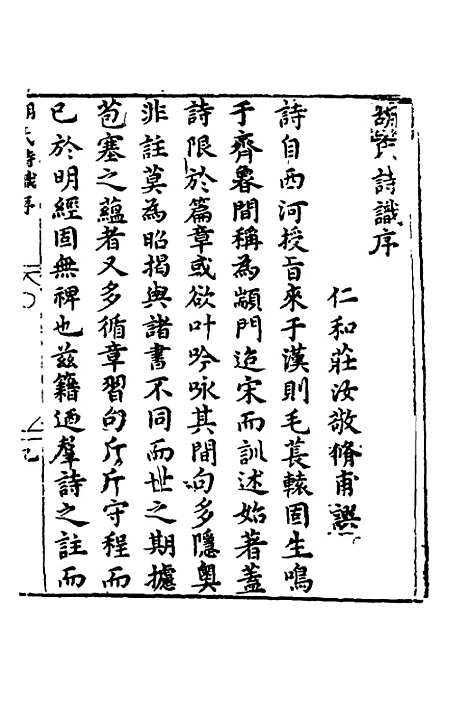 胡氏詩識序
仁和莊汝敬脩甫譔
詩自西河授旨來于漢則毛萇轅固生鳴
于齊魯間稱為顓門迨宋而訓述始著蓋
詩限於篇章或欲叶吟咏其間向多隱奧
非註莫為昭揭與諸書不同而世之期攄
苞塞之蘊者又多循章習句斤斤守程而
已於明經固無裨也茲籍廼羣詩之註而
胡氏詩識序